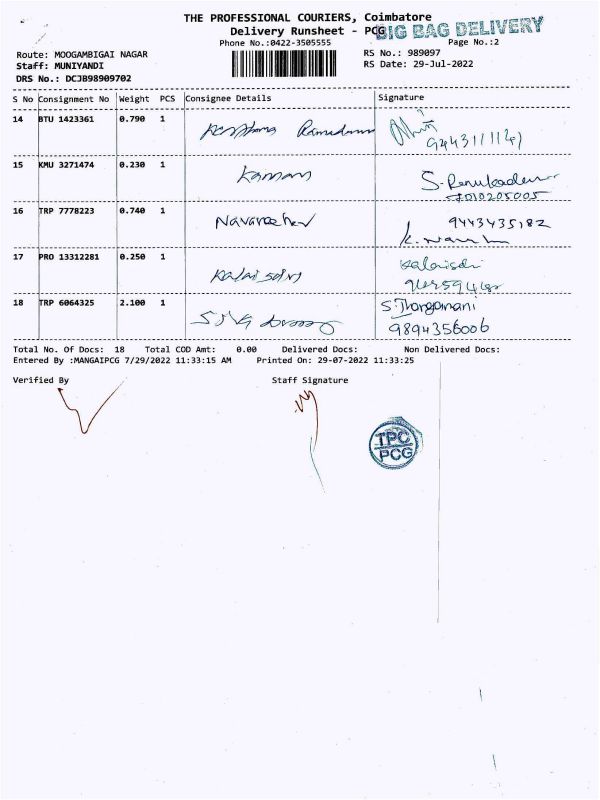 THE PROFESSIONAL COURIERS, Coimbatore
Delivery Runsheet - PCG
BIG BAG DELIVERY
Phone No.:0422-3505555
Page No.:2
Route: MOOGAMBIGAI NAGAR
RS No.: 989097
Staff: MUNIYANDI
RS Date: 29-Jul-2022
DRS No.: DCJB98909702
S No Consignment No Weight PCS Consignee Details Signature
14 BTU 1423361 0.790 1
15 KMU 3271474 0.230 1 Kannan
S. Renukadevi
7010205005
16 TRP 7778223 0.740 1 Navaneethan
9443435182
17 PRO 13312281 0.250 1 Kalaiselvi
Kalaiselvi
18 TRP 6064325 2.100 1
S. Thangamani
9894356006
Total No. Of Docs: 18 Total COD Amt: 0.00 Delivered Docs: Non Delivered Docs:
Entered By :MANGAIPCG 7/29/2022 11:33:15 AM Printed On: 29-07-2022 11:33:25
Verified By Staff Signature
TPC
PCG